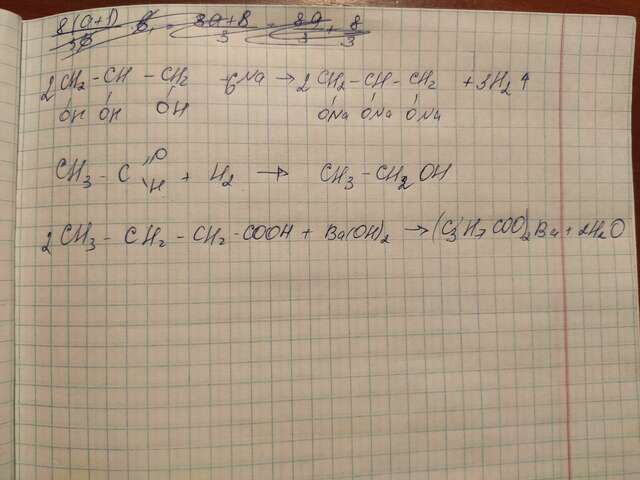 2CH₂ - CH - CH₂ + 6Na → 2CH₂ - CH - CH₂ + 3H₂↑
OH OH OH ONa ONa ONa
O
CH₃ - C + H₂ → CH₃ - CH₂OH
H
2CH₃ - CH₂ - CH₂ - COOH + Ba(OH)₂ → (C₃H₇COO)₂Ba + 2H₂O